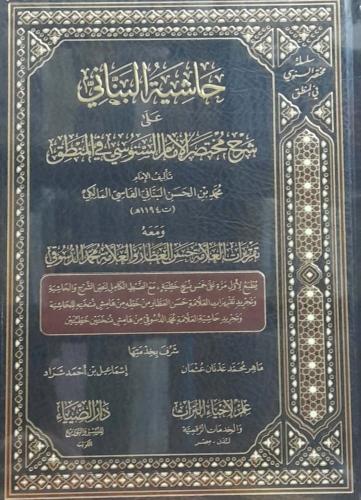 سلسلة
مختصر السنوسي
في المنطق
حاشية البناني
على
شرح مختصر الإمام السنوسي في المنطق
تأليف الإمام
محمد بن الحسن البناني الفاسي المالكي
(ت ١١٩٤هـ)
ومعه
تقريرات العلامة حسن العطار والعلامة محمد الدسوقي
يطبع لأول مرة على خمس نسخ خطية، مع الضبط الكامل لنص الشرح والحاشية
وتجريد تقريرات العلامة حسن العطار من خطه من هامش نسخته للحاشية
وتجريد حاشية العلامة محمد الدسوقي من هامش نسختين خطيتين
شرف بخدمتها
ماهر محمد عدنان عثمان
إسماعيل بن أحمد شراد
علم لإحياء التراث
والخدمات الرقمية
لندن - مصر
دار الضياء
للنشر والتوزيع
الكويت